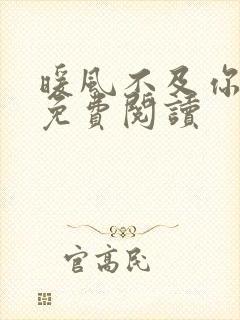 暖风不及你
免費閱讀
官高民